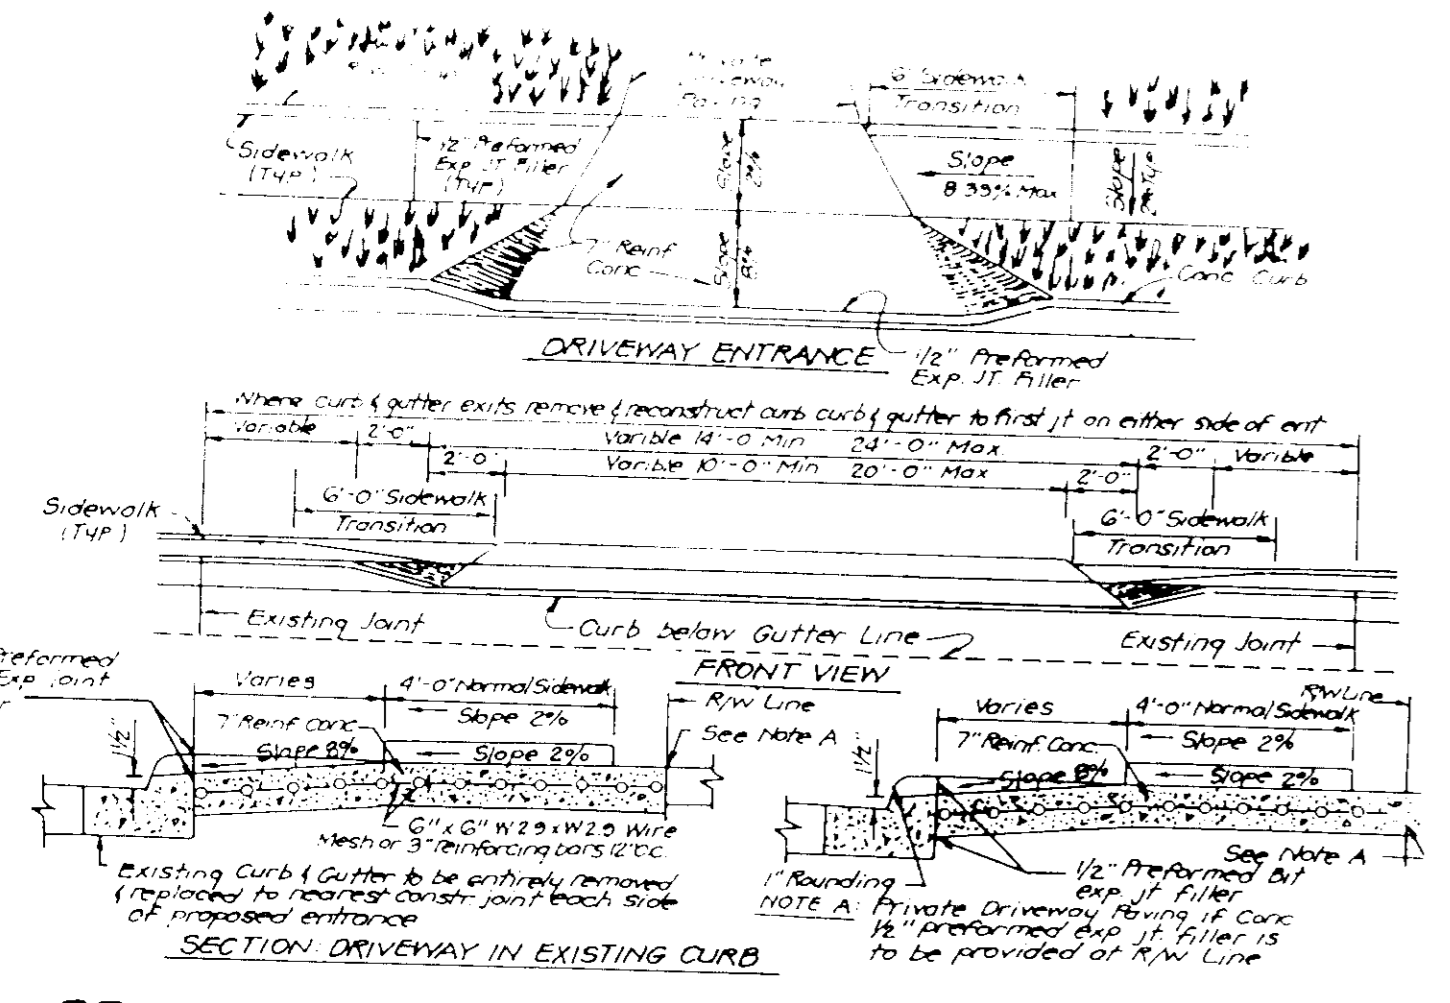 Private
Driveway
Paving
6' Sidewalk
Transition
Sidewalk
(TYP)
1/2" Preformed
Exp. JT. Filler
(TYP)
Slope
2%
Slope
8.33% Max
Slope
2% Typ
7" Reinf
Conc
Slope
8%
Conc Curb
DRIVEWAY ENTRANCE
1/2" Preformed
Exp. JT. Filler
Where curb & gutter exits remove & reconstruct curb curb & gutter to first jt on either side of ent
Variable
2'-0"
Varible 14'-0 Min 24'-0" Max.
2'-0"
Varible
2'-0
Varible 10'-0" Min 20'-0" Max
2'-0"
6'-0" Sidewalk
Transition
6'-0" Sidewalk
Transition
Sidewalk
(TYP)
Existing Joint
Curb below Gutter Line
Existing Joint
FRONT VIEW
Preformed
Exp. joint
Varies
4'-0" Normal Sidewalk
Slope 2%
R/W Line
7" Reinf. Conc.
See Note A
1 1/2"
Slope 8%
Slope 2%
6" x 6" W2.9 x W2.9 Wire
Mesh or 3" reinforcing bars 12" O.C.
Existing Curb & Gutter to be entirely removed
& replaced to nearest constr. joint each side
of proposed entrance
SECTION: DRIVEWAY IN EXISTING CURB
R/W Line
Varies
4'-0" Normal Sidewalk
Slope 2%
7" Reinf. Conc.
1 1/2"
Slope 8%
Slope 2%
See Note A
1" Rounding
1/2" Preformed Bit
exp. jt filler
NOTE A: Private Driveway Paving if Conc
1/2" preformed exp. jt. filler is
to be provided at R/W Line